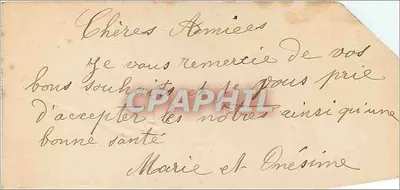 Chères Amiées
Je vous remercie de vos
bons souhaits et je vous prie
CPAPHIL
d'accepter les nôtres ainsi qu'une
bonne santé
Marie et Onésime